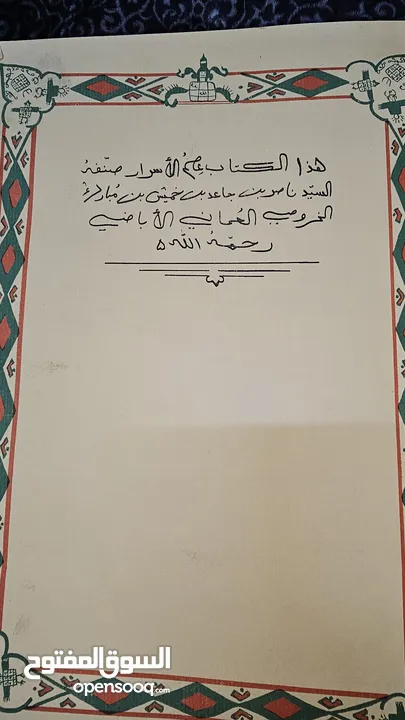 هذا الكتاب علم الأسرار صنّفهُ
السيّد ناصر بن جاعد بن خميس بن مُبارك
الخروصي العُماني الأباضي
رحمهُ اللّه
السوق المفتوح
opensooq.com